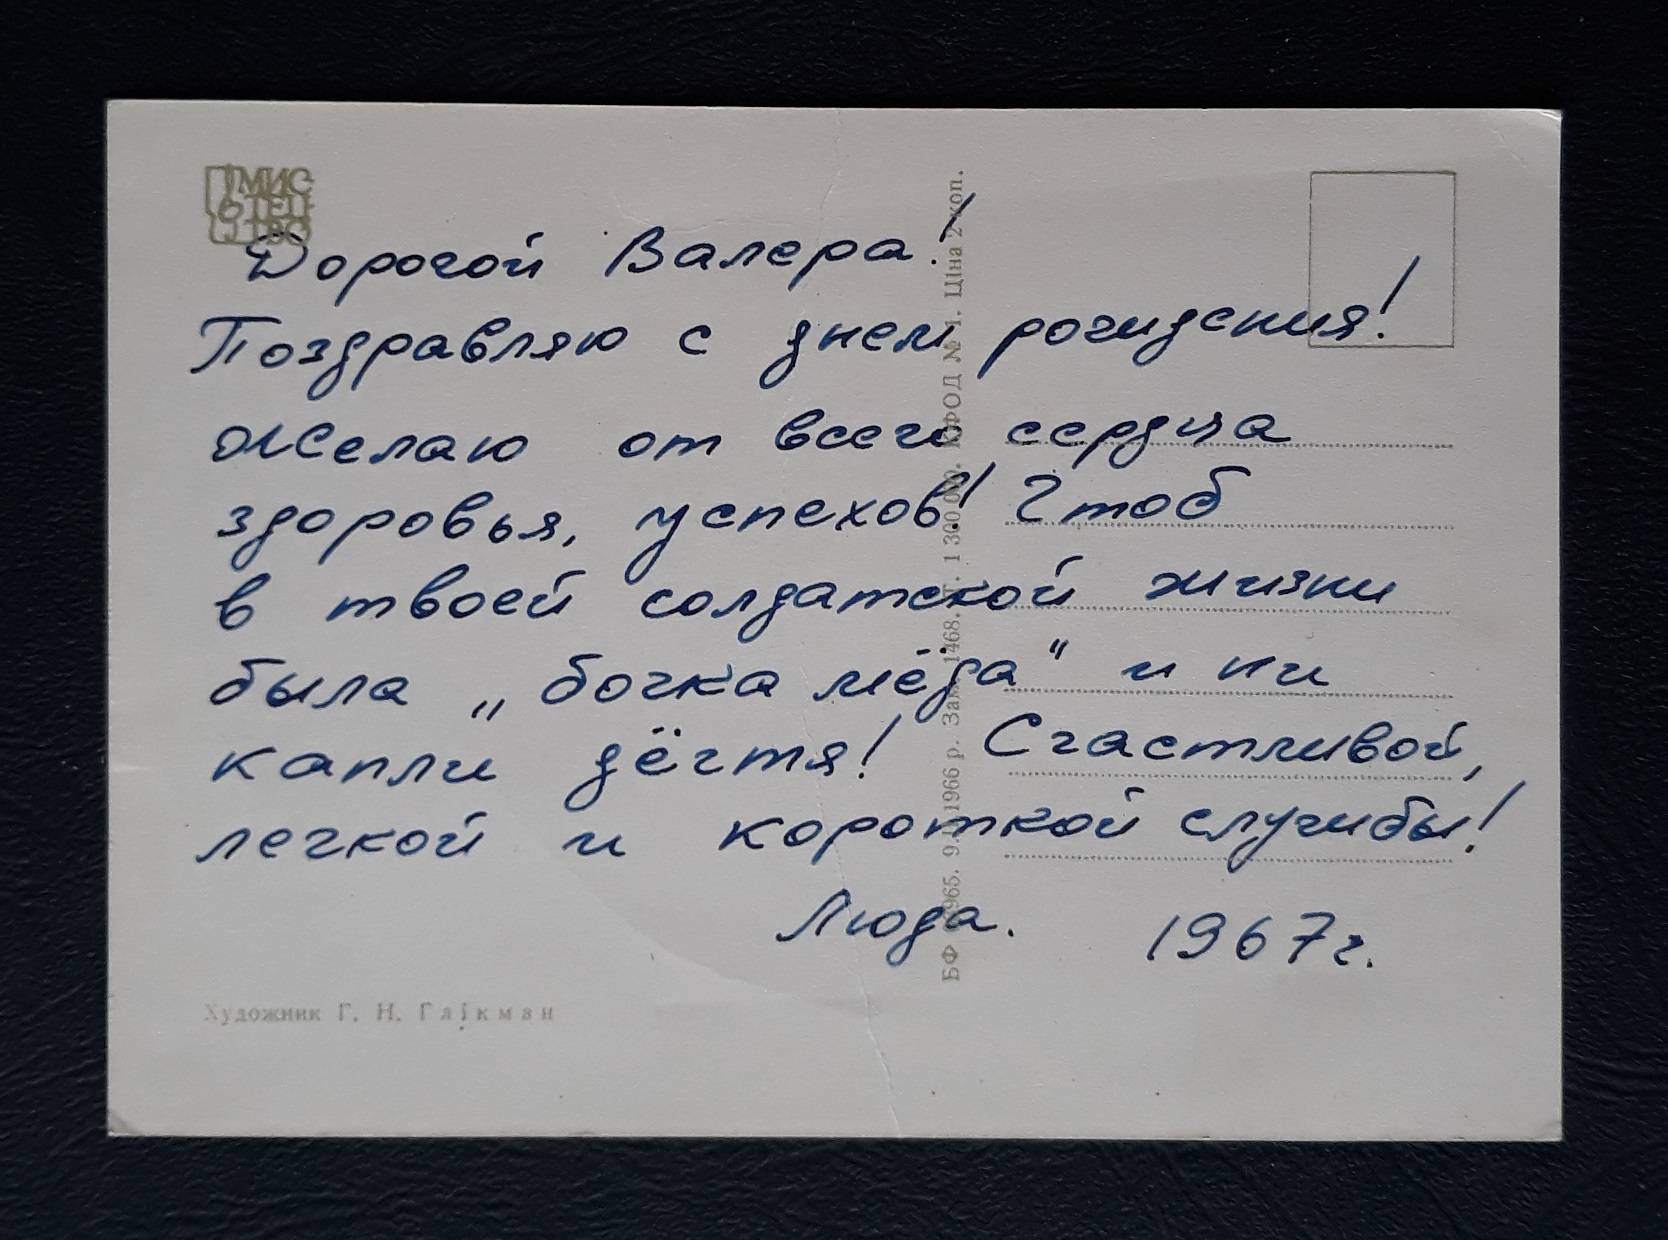 МИС
ТЕЦ
ТВО
Дорогой Валера!
Поздравляю с днем рождения!
Желаю от всего сердца
здоровья, успехов! Чтоб
в твоей солдатской жизни
была „бочка мёда" и ни
капли дёгтя! Счастливой,
легкой и короткой службы!
Люда. 1967г.
Художник Г. Н. Глікман
1966 р. Зам. 1468. Т. 1 300 000. КФОД № 1. Ціна 2 коп.